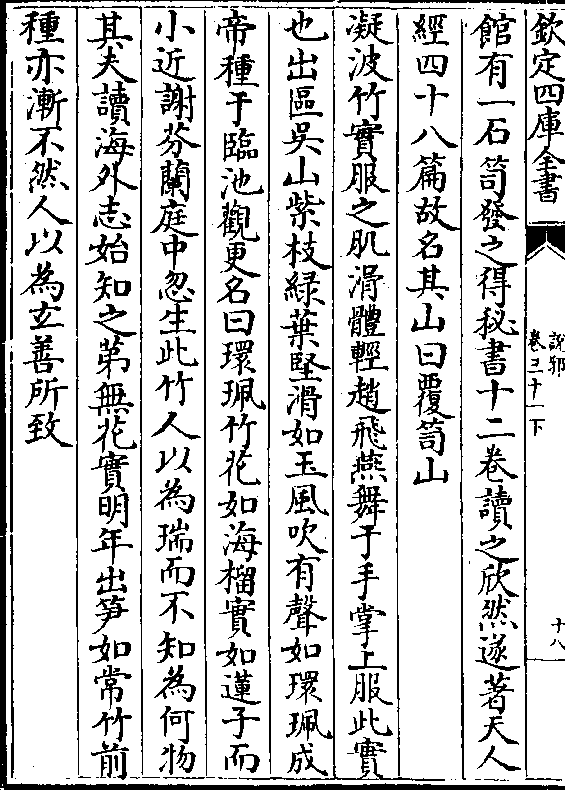 欽定四庫全書
說郛
卷三十一下
十八
館有一石笥發之得秘書十二卷讀之欣然遂著天人
經四十八篇故名其山曰覆笥山
凝波竹實服之肌滑體輕趙飛燕舞于手掌上服此實
也出區吳山紫枝綠葉堅滑如玉風吹有聲如環珮成
帝種于臨池觀更名曰環珮竹花如海榴實如蓮子而
小近謝芬蘭庭中忽生此竹人以為瑞而不知為何物
其夫讀海外志始知之第無花實明年出笋如常竹前
種亦漸不然人以為玄善所致